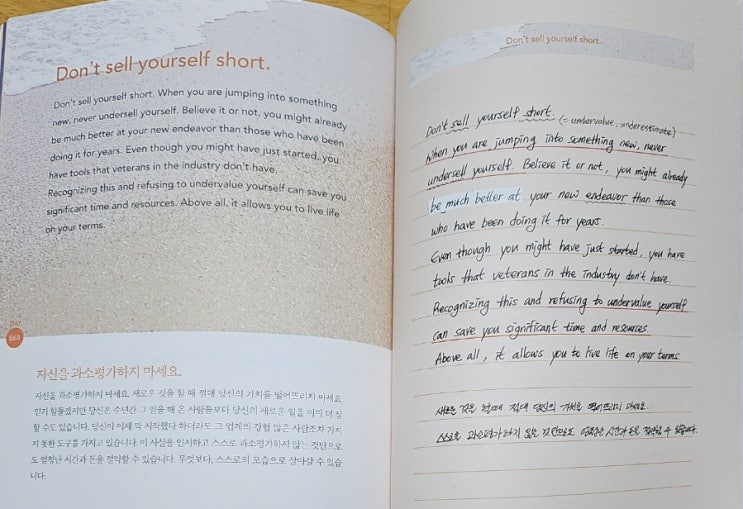 Don't sell yourself short.
Don't sell yourself short. When you are jumping into something
new, never undersell yourself. Believe it or not, you might already
be much better at your new endeavor than those who have been
doing it for years. Even though you might have just started, you
have tools that veterans in the industry don't have.
Recognizing this and refusing to undervalue yourself can save you
significant time and resources. Above all, it allows you to live life
on your terms.
DAY
068
자신을 과소평가하지 마세요.
자신을 과소평가하지 마세요. 새로운 것을 할 때 절대 당신의 가치를 떨어뜨리지 마세요.
믿기 힘들겠지만 당신은 수년간 그 일을 해 온 사람들보다 당신의 새로운 일을 이미 더 잘
할 수도 있습니다. 당신이 이제 막 시작했다 하더라도 그 업계의 경험 많은 사람조차 가지
지 못한 도구를 가지고 있습니다. 이 사실을 인지하고 스스로 과소평가하지 않는 것만으로
도 엄청난 시간과 돈을 절약할 수 있습니다. 무엇보다, 스스로의 모습으로 살아갈 수 있습
니다.
Don't sell yourself short.
Don't sell yourself short. (= undervalue. underestimate)
When you are jumping into something new, never
undersell yourself. Believe it or not, you might already
be much better at your new endeavor than those
who have been doing it for years.
Even though you might have just started, you have
tools that veterans in the industry don't have.
Recognizing this and refusing to undervalue yourself
can save you significant time and resources.
Above all, it allows you to live life on your terms
새로운 것을 할때 절대 당신의 가치를 떨어뜨리지 마세요.
스스로 과소평가하지 않는 것만으로도 엄청난 시간과 돈을 절약할 수 있습니다.